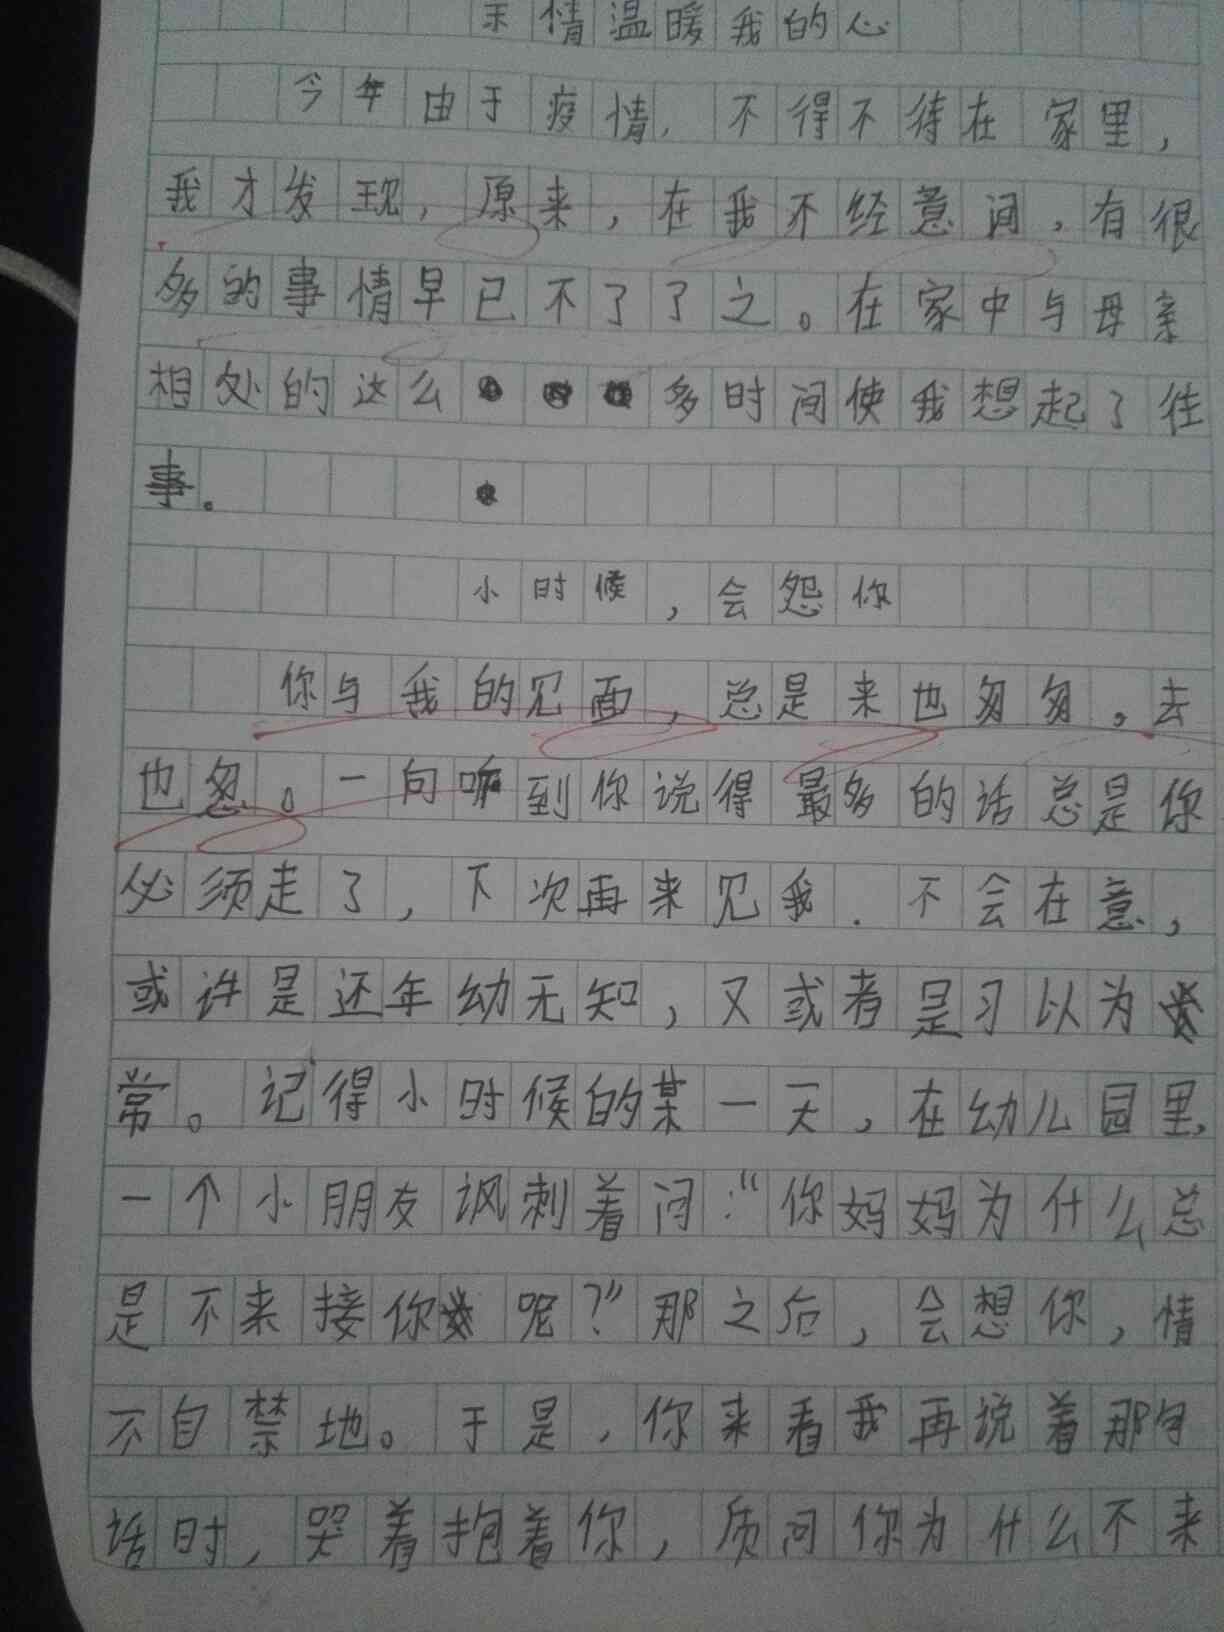 亲情温暖我的心
今年由于疫情,不得不待在家里,
我才发现,原来,在我不经意间,有很
多的事情早已不了了之。在家中与母亲
相处的这么多时间使我想起了往
事。
小时候,会怨你
你与我的见面,总是来也匆匆。去
也忽。一向听到你说得最多的话总是你
必须走了,下次再来见我.不会在意,
或许是还年幼无知,又或者是习以为
常。记得小时候的某一天,在幼儿园里,
一个小朋友讽刺着问:“你妈妈为什么总
是不来接你呢?”那之后,会想你,情
不自禁地。于是,你来看我再说着那句
话时,哭着抱着你,质问你为什么不来